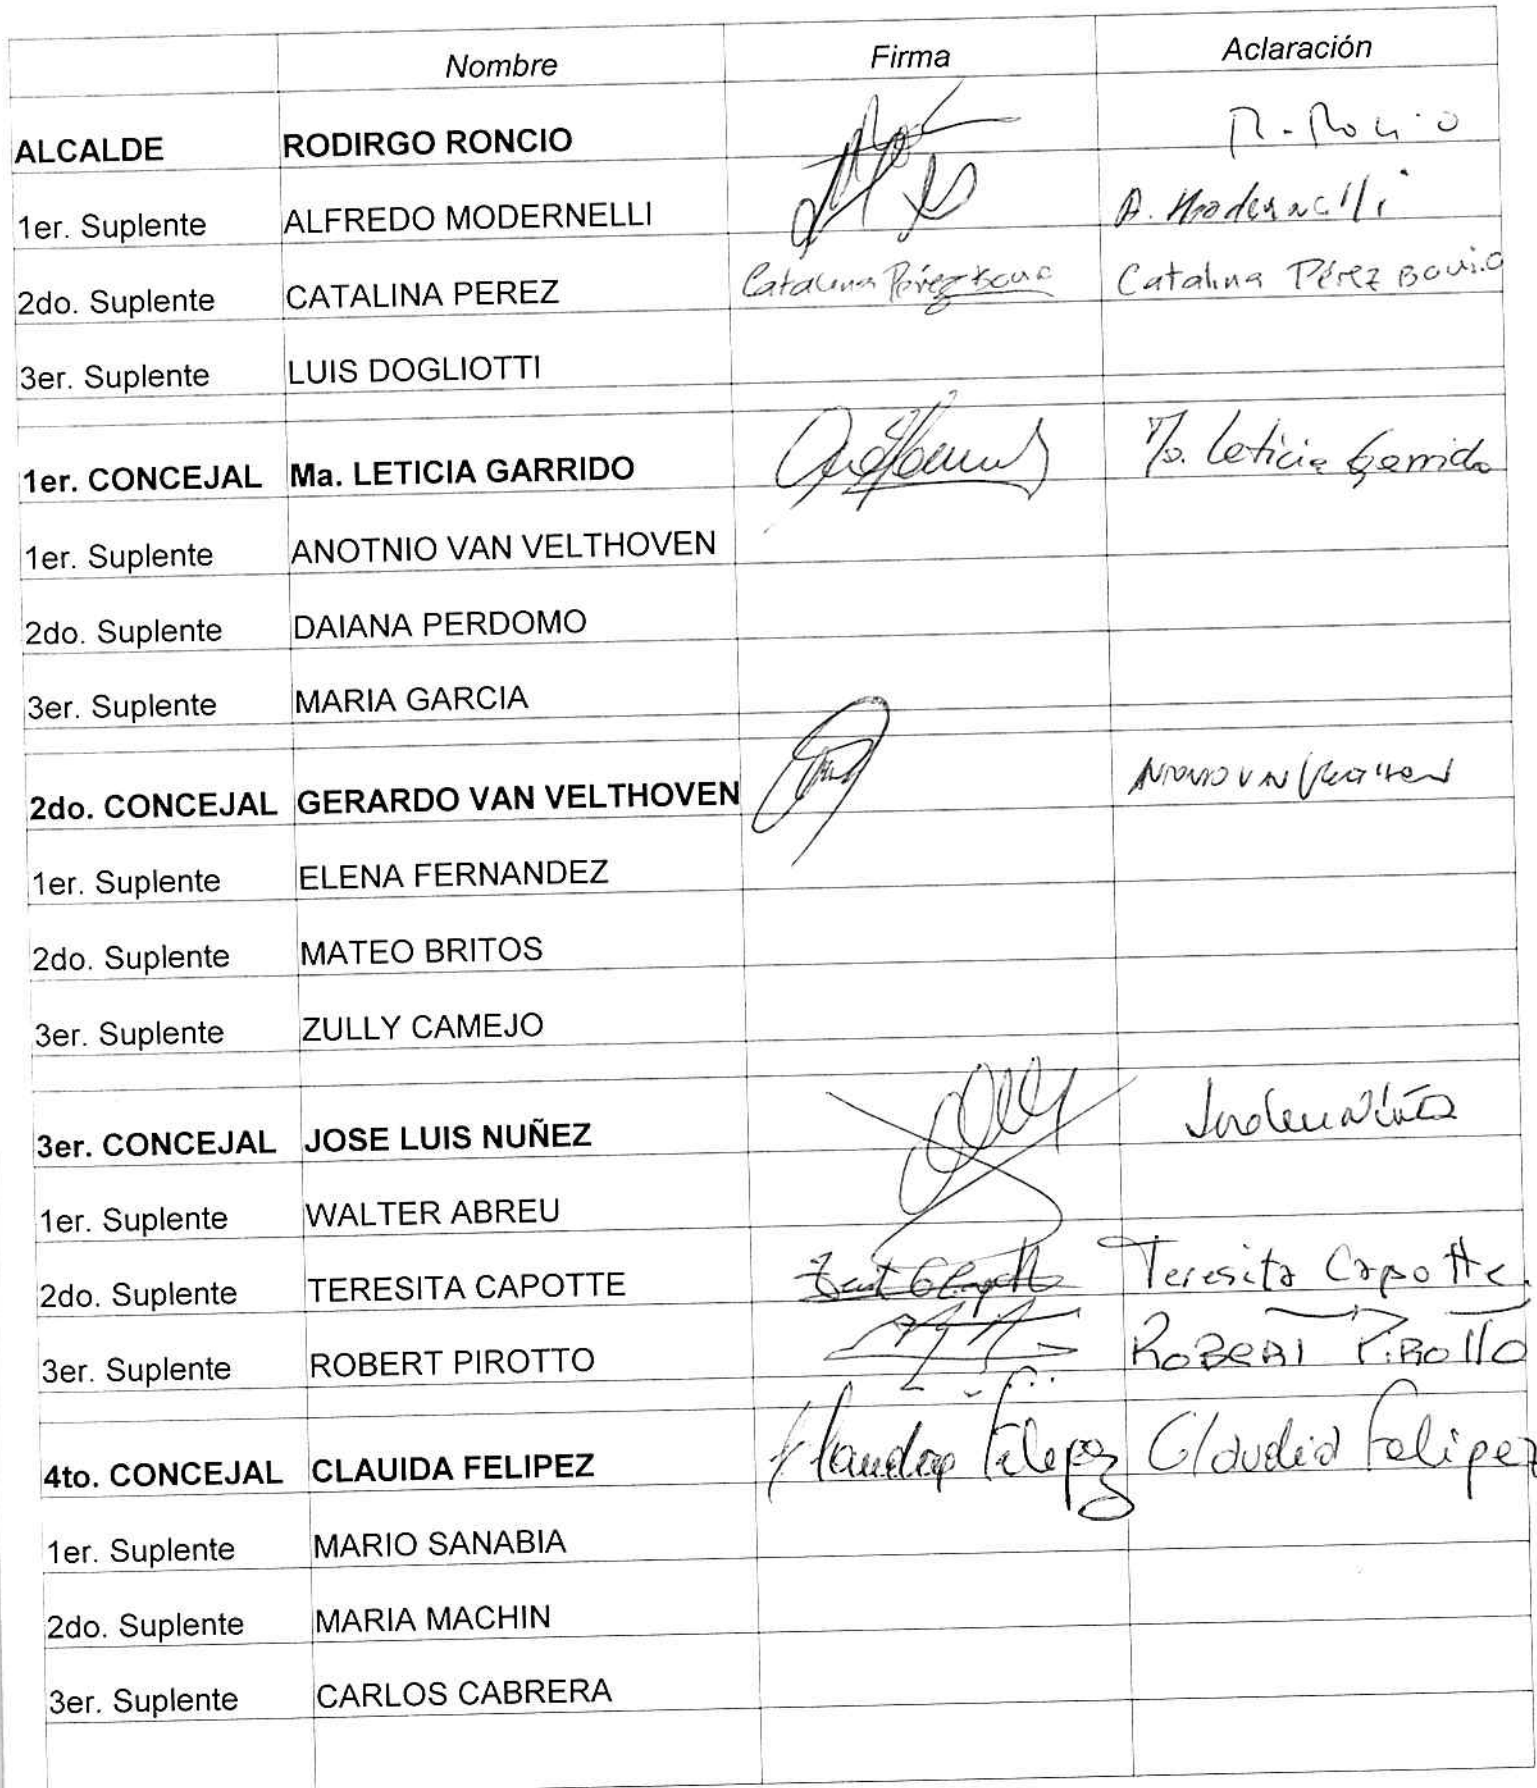 Nombre Firma Aclaración
ALCALDE RODIRGO RONCIO R. Roncio
1er. Suplente ALFREDO MODERNELLI A. Modernelli
2do. Suplente CATALINA PEREZ Catalina Pérez Catalina Pérez Bovio
3er. Suplente LUIS DOGLIOTTI
1er. CONCEJAL Ma. LETICIA GARRIDO Ma. Leticia Garrido
1er. Suplente ANOTNIO VAN VELTHOVEN
2do. Suplente DAIANA PERDOMO
3er. Suplente MARIA GARCIA
2do. CONCEJAL GERARDO VAN VELTHOVEN VAN
1er. Suplente ELENA FERNANDEZ
2do. Suplente MATEO BRITOS
3er. Suplente ZULLY CAMEJO
3er. CONCEJAL JOSE LUIS NUÑEZ
1er. Suplente WALTER ABREU
2do. Suplente TERESITA CAPOTTE Teresita Capotte
3er. Suplente ROBERT PIROTTO ROBERT PIROTTO
4to. CONCEJAL CLAUIDA FELIPEZ Claudia Felipez Claudia Felipez
1er. Suplente MARIO SANABIA
2do. Suplente MARIA MACHIN
3er. Suplente CARLOS CABRERA